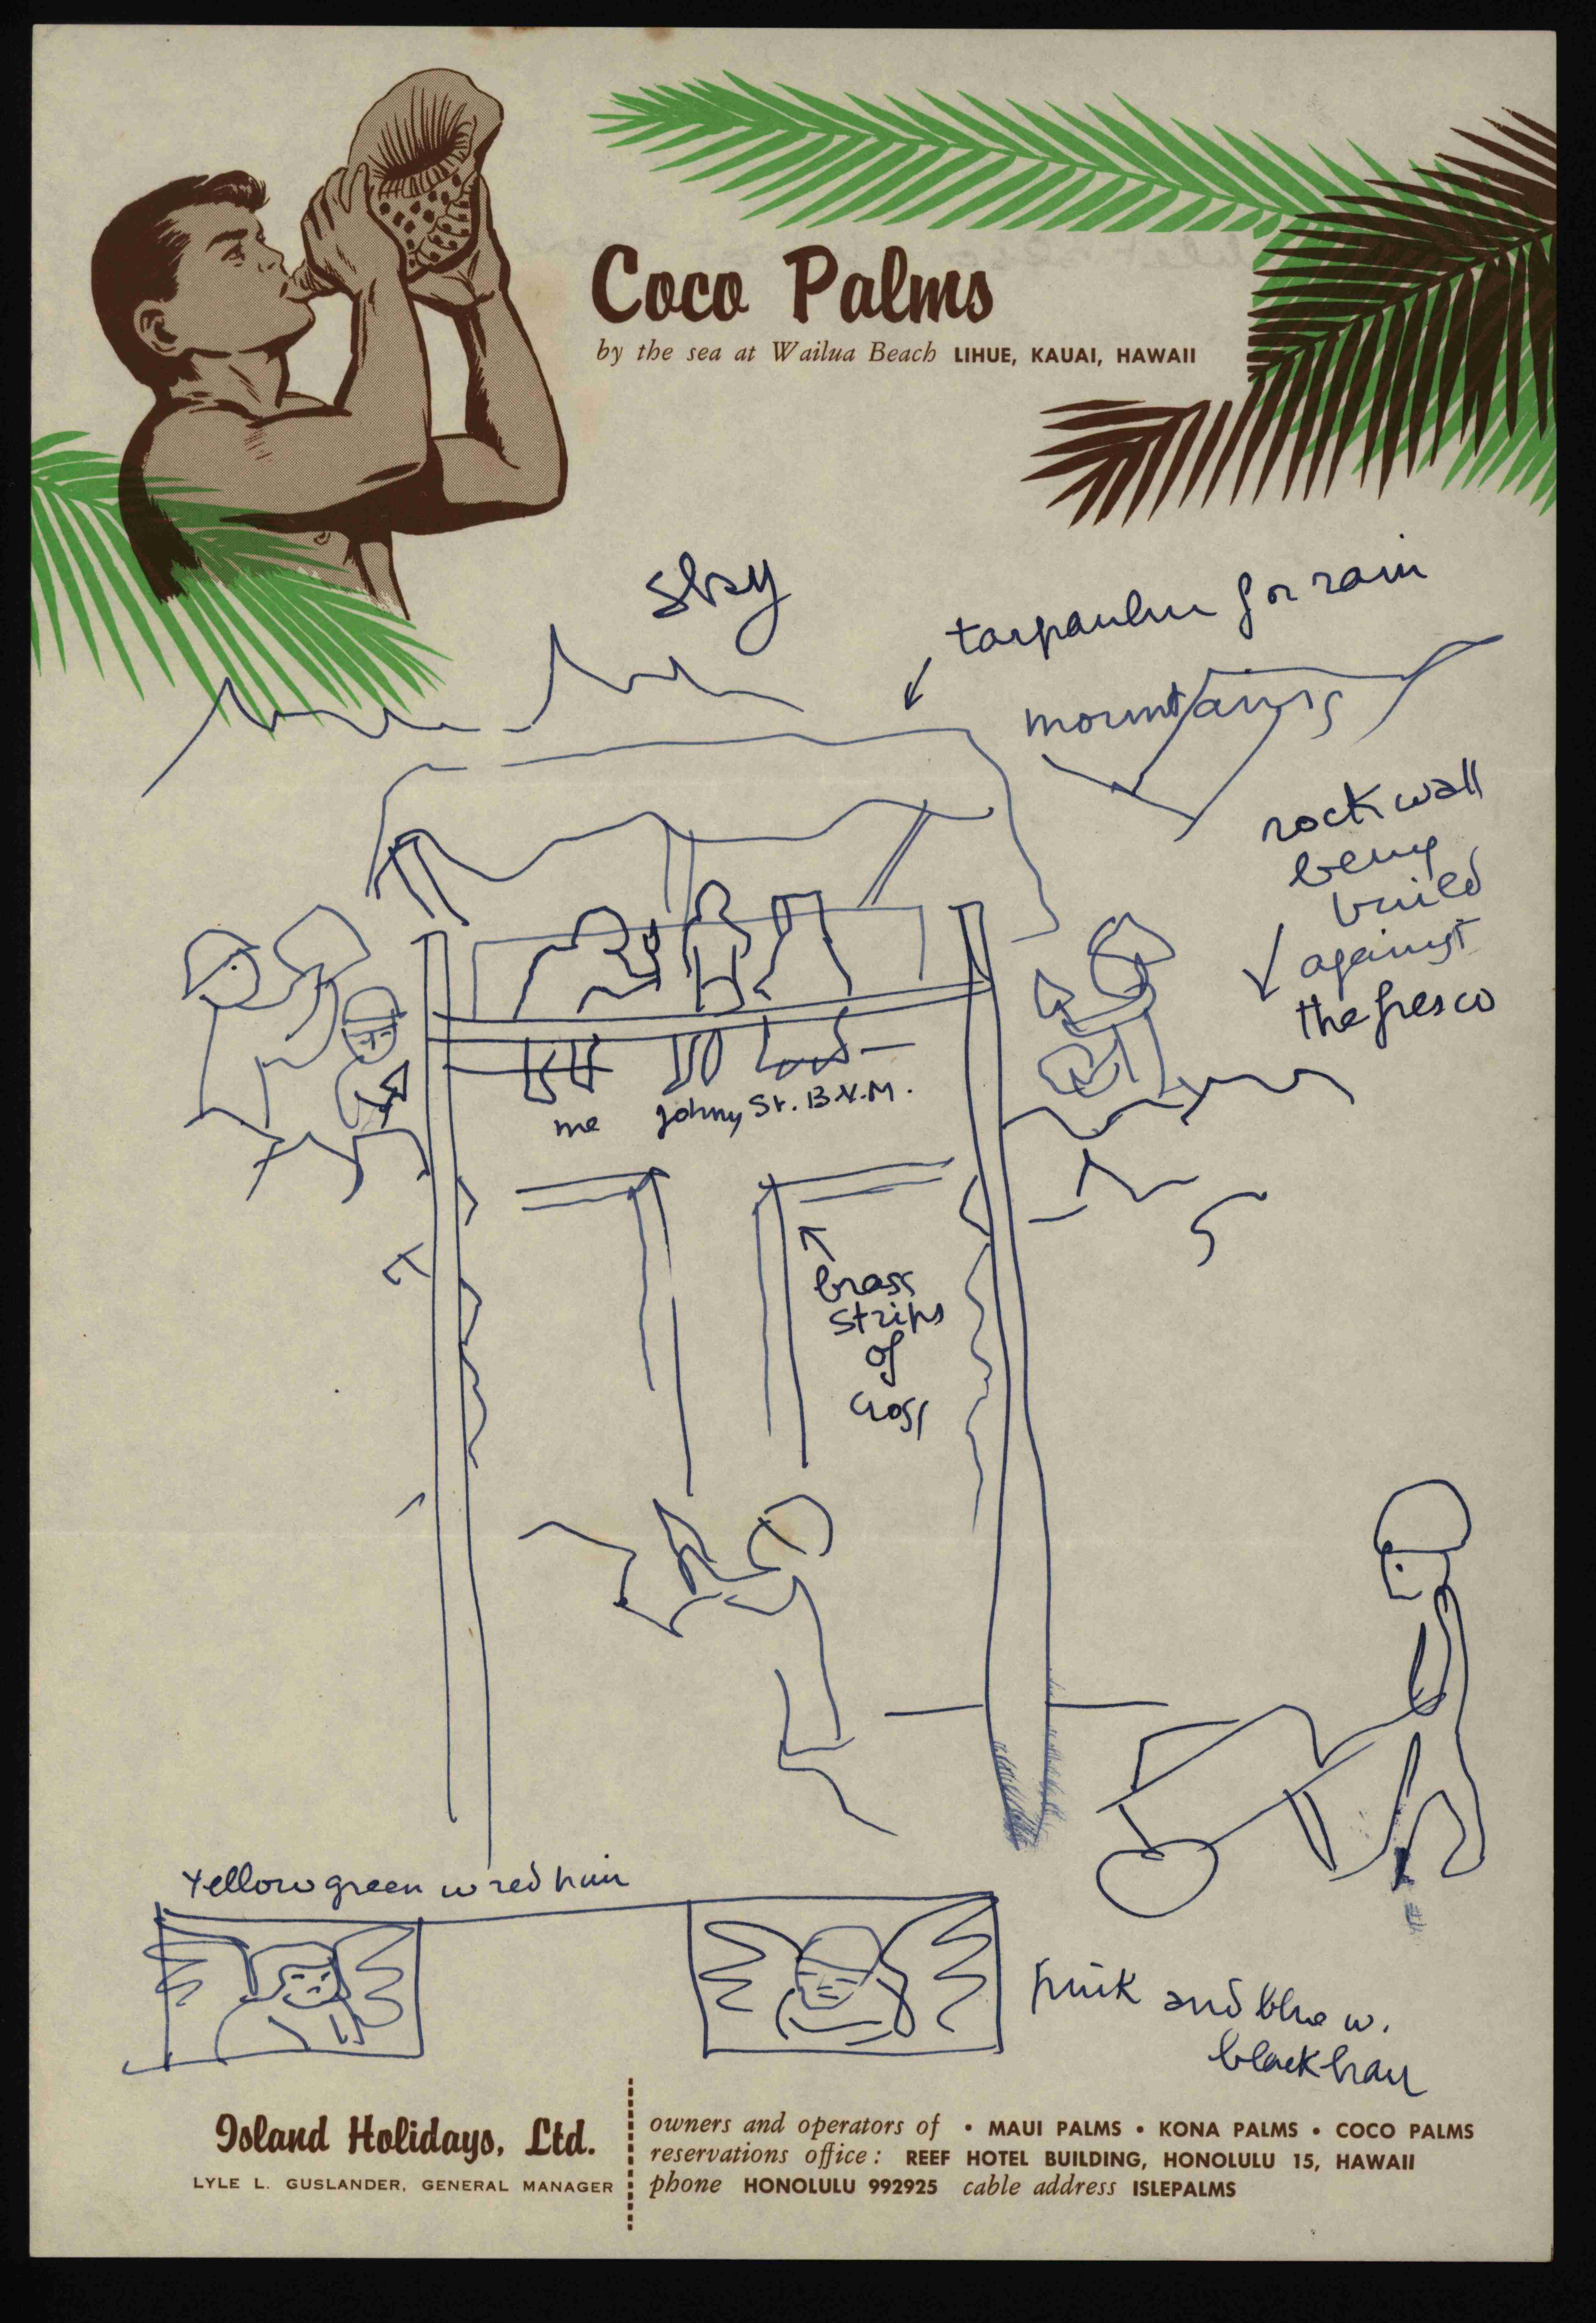 Coco Palms
by the sea at Wailua Beach LIHUE, KAUAI, HAWAII
sky
tarpaulin for rain
mountains
rock wall
being
build
against
the fresco
me Johny St. B.V.M.
brass
strips
of
cross
Yellow green w red hair
pink and blue w.
black hair
Island Holidays, Ltd.
LYLE L. GUSLANDER, GENERAL MANAGER
owners and operators of • MAUI PALMS • KONA PALMS • COCO PALMS
reservations office: REEF HOTEL BUILDING, HONOLULU 15, HAWAII
phone HONOLULU 992925 cable address ISLEPALMS